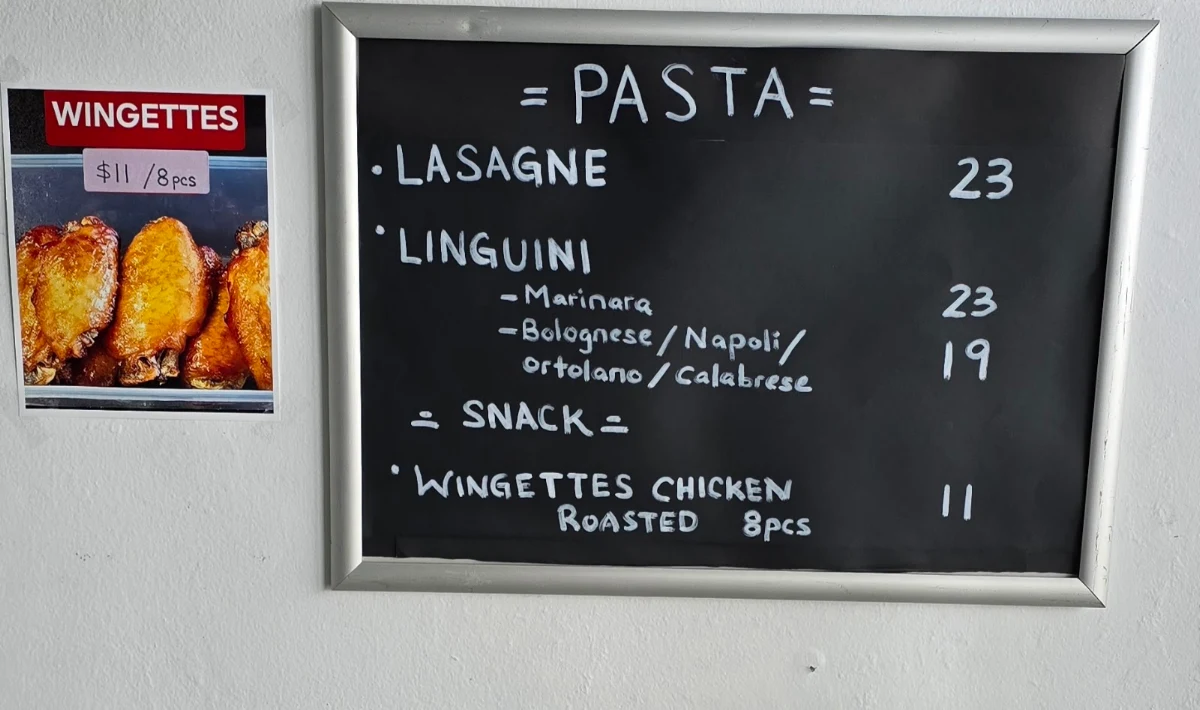 WINGETTES
$11 /8pcs
= PASTA =
• LASAGNE 23
• LINGUINI
- Marinara 23
- Bolognese / Napoli / 19
ortolano / Calabrese
= SNACK =
• WINGETTES CHICKEN 11
ROASTED 8pcs